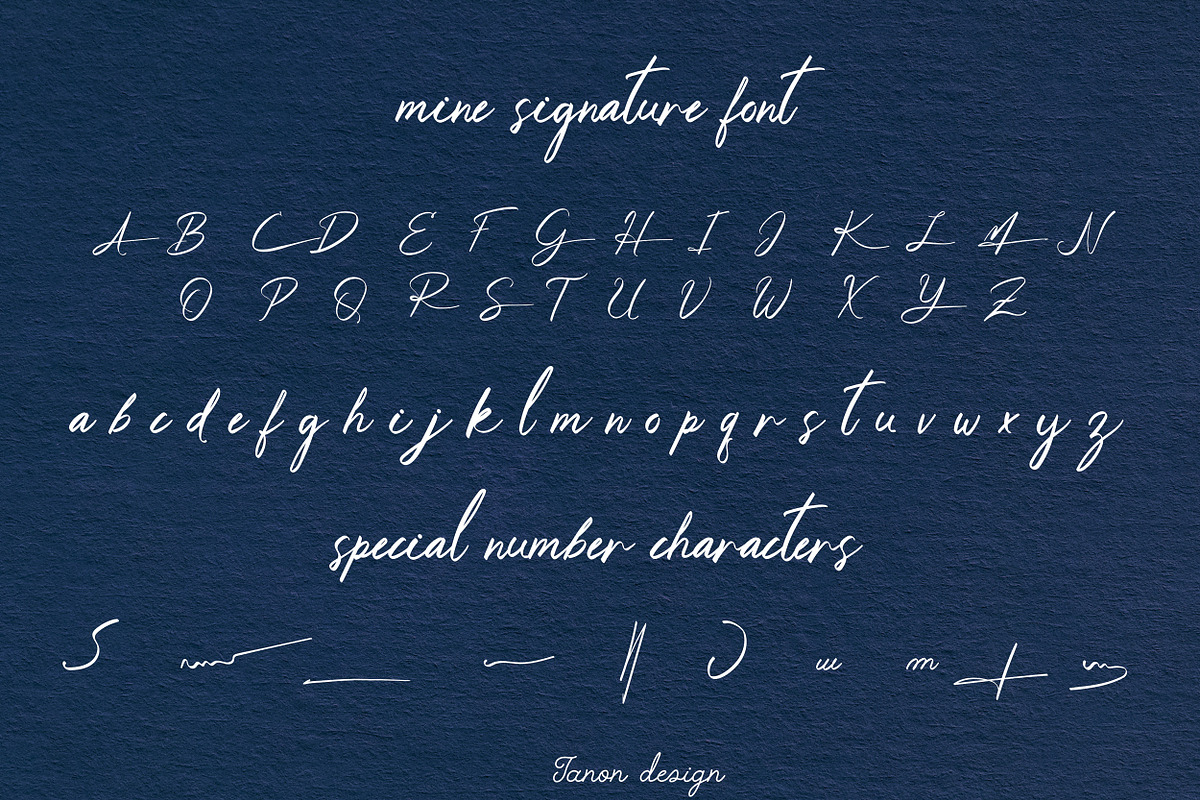 mine signature font
A B C D E F G H I J K L M N
O P Q R S T U V W X Y Z
a b c d e f g h i j k l m n o p q r s t u v w x y z
special number characters
Tanon design